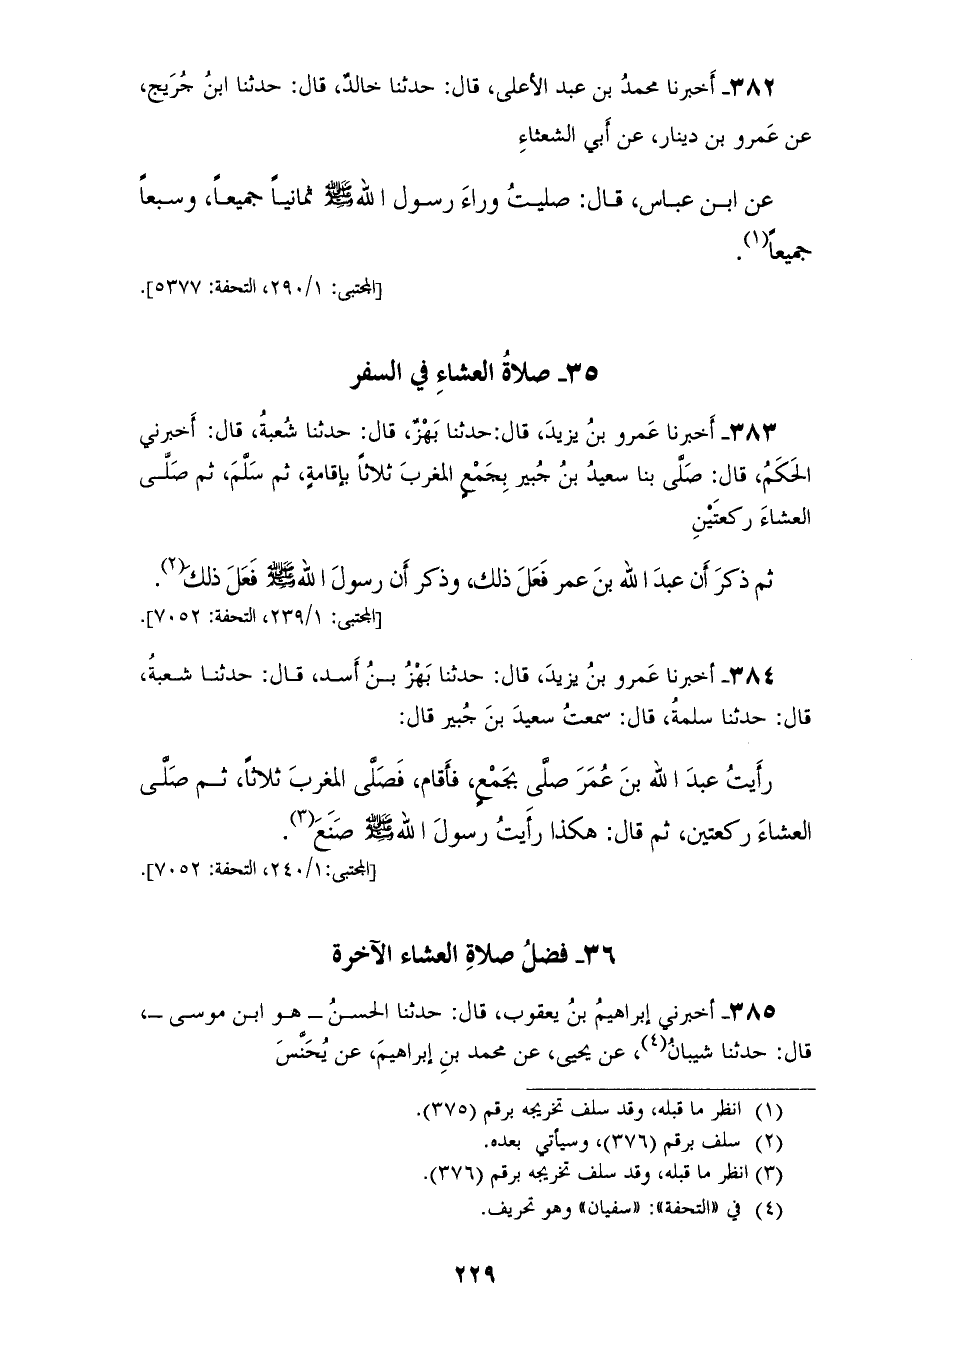 ٣٨٢ـ أَخبرنا محمدُ بن عبد الأعلى، قال: حدثنا خالدٌ، قال: حدثنا ابنُ جُرَيج،
عن عَمرو بن دينار، عن أَبي الشعثاءِ
عن ابن عباس، قال: صليتُ وراءَ رسول الله ﷺ ثمانياً جميعاً، وسبعاً
جميعاً(١).
[المجتبى: ٢٩٠/١، التحفة: ٥٣٧٧].
٣٥ـ صلاةُ العشاءِ في السفر
٣٨٣ـ أَخبرنا عَمرو بنُ يزيدَ، قال:حدثنا بَهْزٌ، قال: حدثنا شُعبةُ، قال: أَخبرني
الحَكَمُ، قال: صَلَّى بنا سعيدُ بنُ جُبير بِجَمْعٍ المغربَ ثلاثاً بإقامةٍ، ثم سَلَّمَ، ثم صَلَّى
العشاءَ ركعتَيْنِ
ثم ذكرَ أَن عبدَ الله بنَ عمر فَعَلَ ذلك، وذكر أَن رسولَ الله ﷺ فَعَلَ ذلكَ(٢).
[المجتبى: ٢٣٩/١، التحفة: ٧٠٥٢].
٣٨٤ـ أخبرنا عَمرو بنُ يزيدَ، قال: حدثنا بَهْزُ بنُ أَسد، قال: حدثنا شعبةُ،
قال: حدثنا سلمةُ، قال: سمعتُ سعيدَ بنَ جُبير قال:
رأَيتُ عبدَ الله بنَ عُمَرَ صلَّى بجَمْعٍ، فأَقام، فَصَلَّى المغربَ ثلاثاً، ثم صَلَّى
العشاءَ ركعتين، ثم قال: هكذا رأَيتُ رسولَ الله ﷺ صَنَعَ(٣).
[المجتبى: ٢٤٠/١، التحفة: ٧٠٥٢].
٣٦ـ فضلُ صلاةِ العشاء الآخرة
٣٨٥ـ أخبرني إبراهيمُ بنُ يعقوب، قال: حدثنا الحسنُ ـ هو ابن موسى ـ،
قال: حدثنا شيبانُ(٤)، عن يحيى، عن محمد بنِ إبراهيمَ، عن يُحَنَّسَ
(١) انظر ما قبله، وقد سلف تخريجه برقم (٣٧٥).
(٢) سلف برقم (٣٧٦)، وسيأتي بعده.
(٣) انظر ما قبله، وقد سلف تخريجه برقم (٣٧٦).
(٤) في «التحفة»: «سفيان» وهو تحريف.
٢٢٩